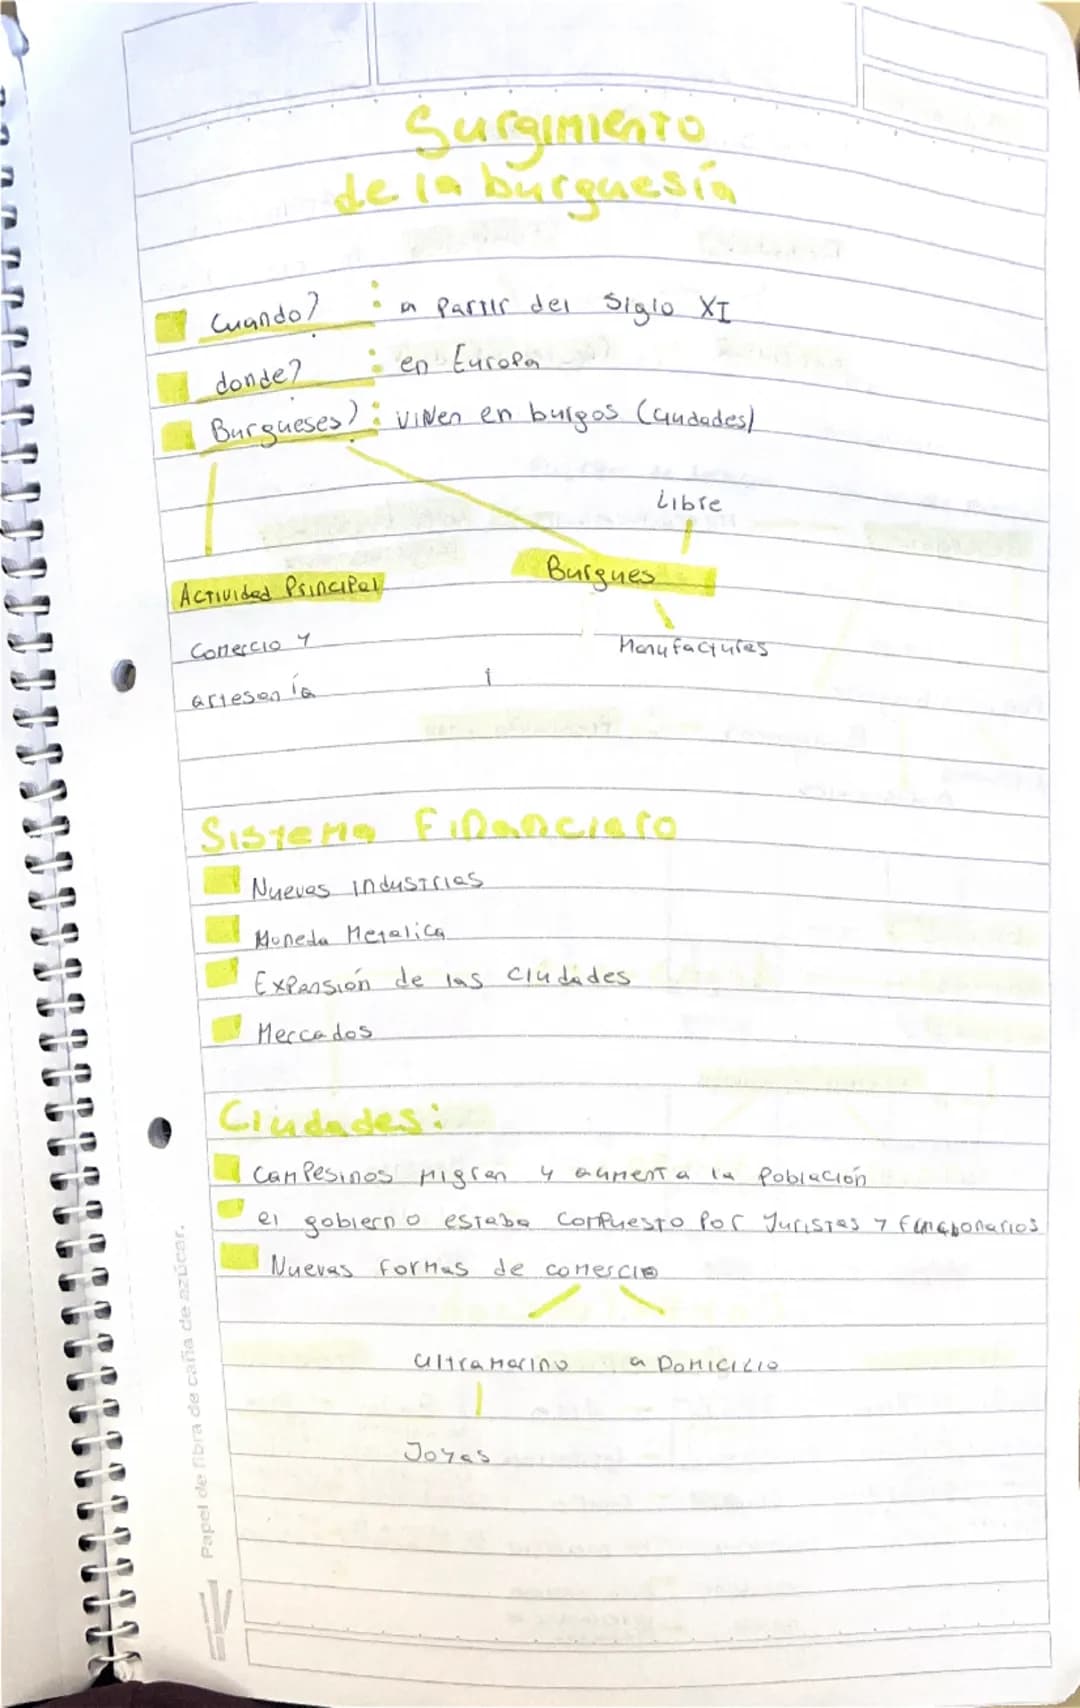 Surgimiento
de la burguesía
Cuando? : a partir del Siglo XI
donde? : en Europa
Burgueses) : viven en burgos (ciudades)
Libre
Burgues
Actividad Principal
Comercio y
Manufacturas
artesanía
Sistema Financiero
Nuevas industrias
Moneda Metalica
Expansión de las ciudades
Mercados
Ciudades:
Campesinos migran y aumenta la población
el gobierno estaba compuesto por Juristas y funcionarios
Nuevas formas de comercio
ultramarino a Domicilio
Joyas
Papel de fibra de caña de azúcar.